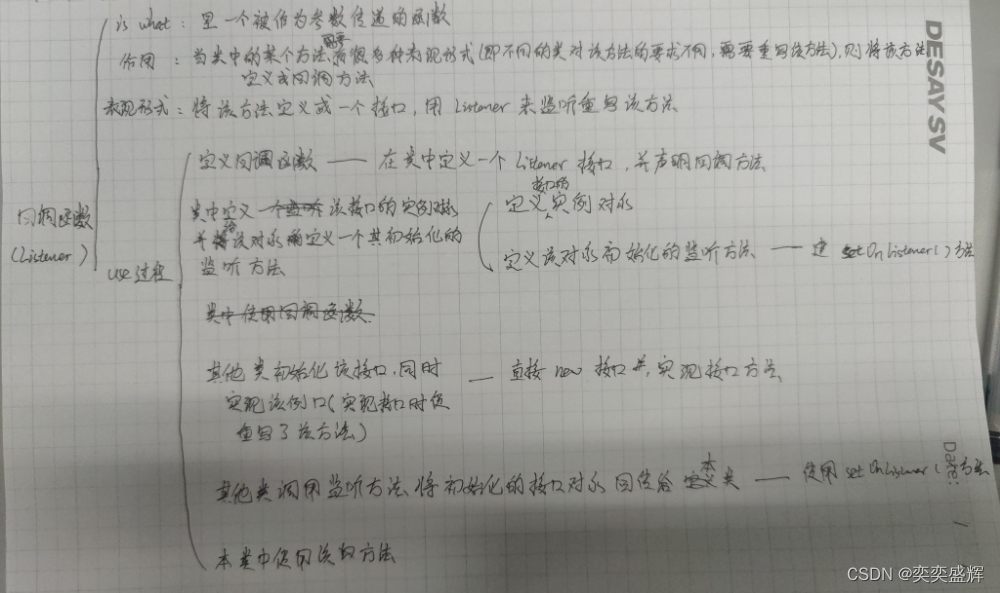 is what：是一个被作为参数传递的函数
作用：当类中的某个方法需要有很多种表现形式(即不同的类对该方法的要求不同，需要重写该方法)，则将该方法
定义成回调方法
表现形式：将该方法定义成一个接口，用 Listener 来监听重写该方法
回调函数
(Listener)
use过程
定义回调函数 —— 在类中定义一个 Listener 接口，并声明回调方法
类中定义 该接口的实例对象
并给该对象 定义一个其初始化的
监听方法
定义接口的实例对象
定义该对象初始化的监听方法 —— 建 setOnListener()方法
类中使用回调函数
其他类初始化该接口，同时
实现该例口(实现接口时便
重写了该方法)
—— 直接 new 接口并，实现接口方法
其他类调用监听方法，将初始化的接口对象回传给本类 —— 使用 setOnListener()方法
本类中使用该 方法
DESAY SV
Date:
CSDN @奕奕盛辉